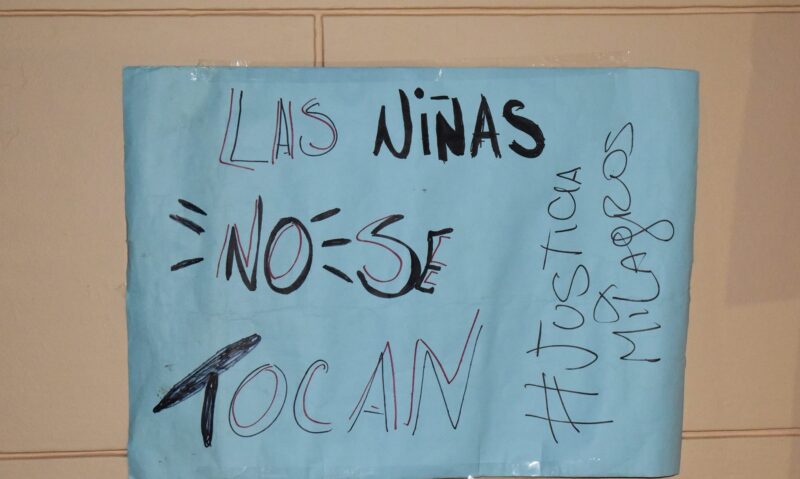 LAS NIÑAS
NO SE
TOCAN
#JUSTICIA
X
MILAGROS